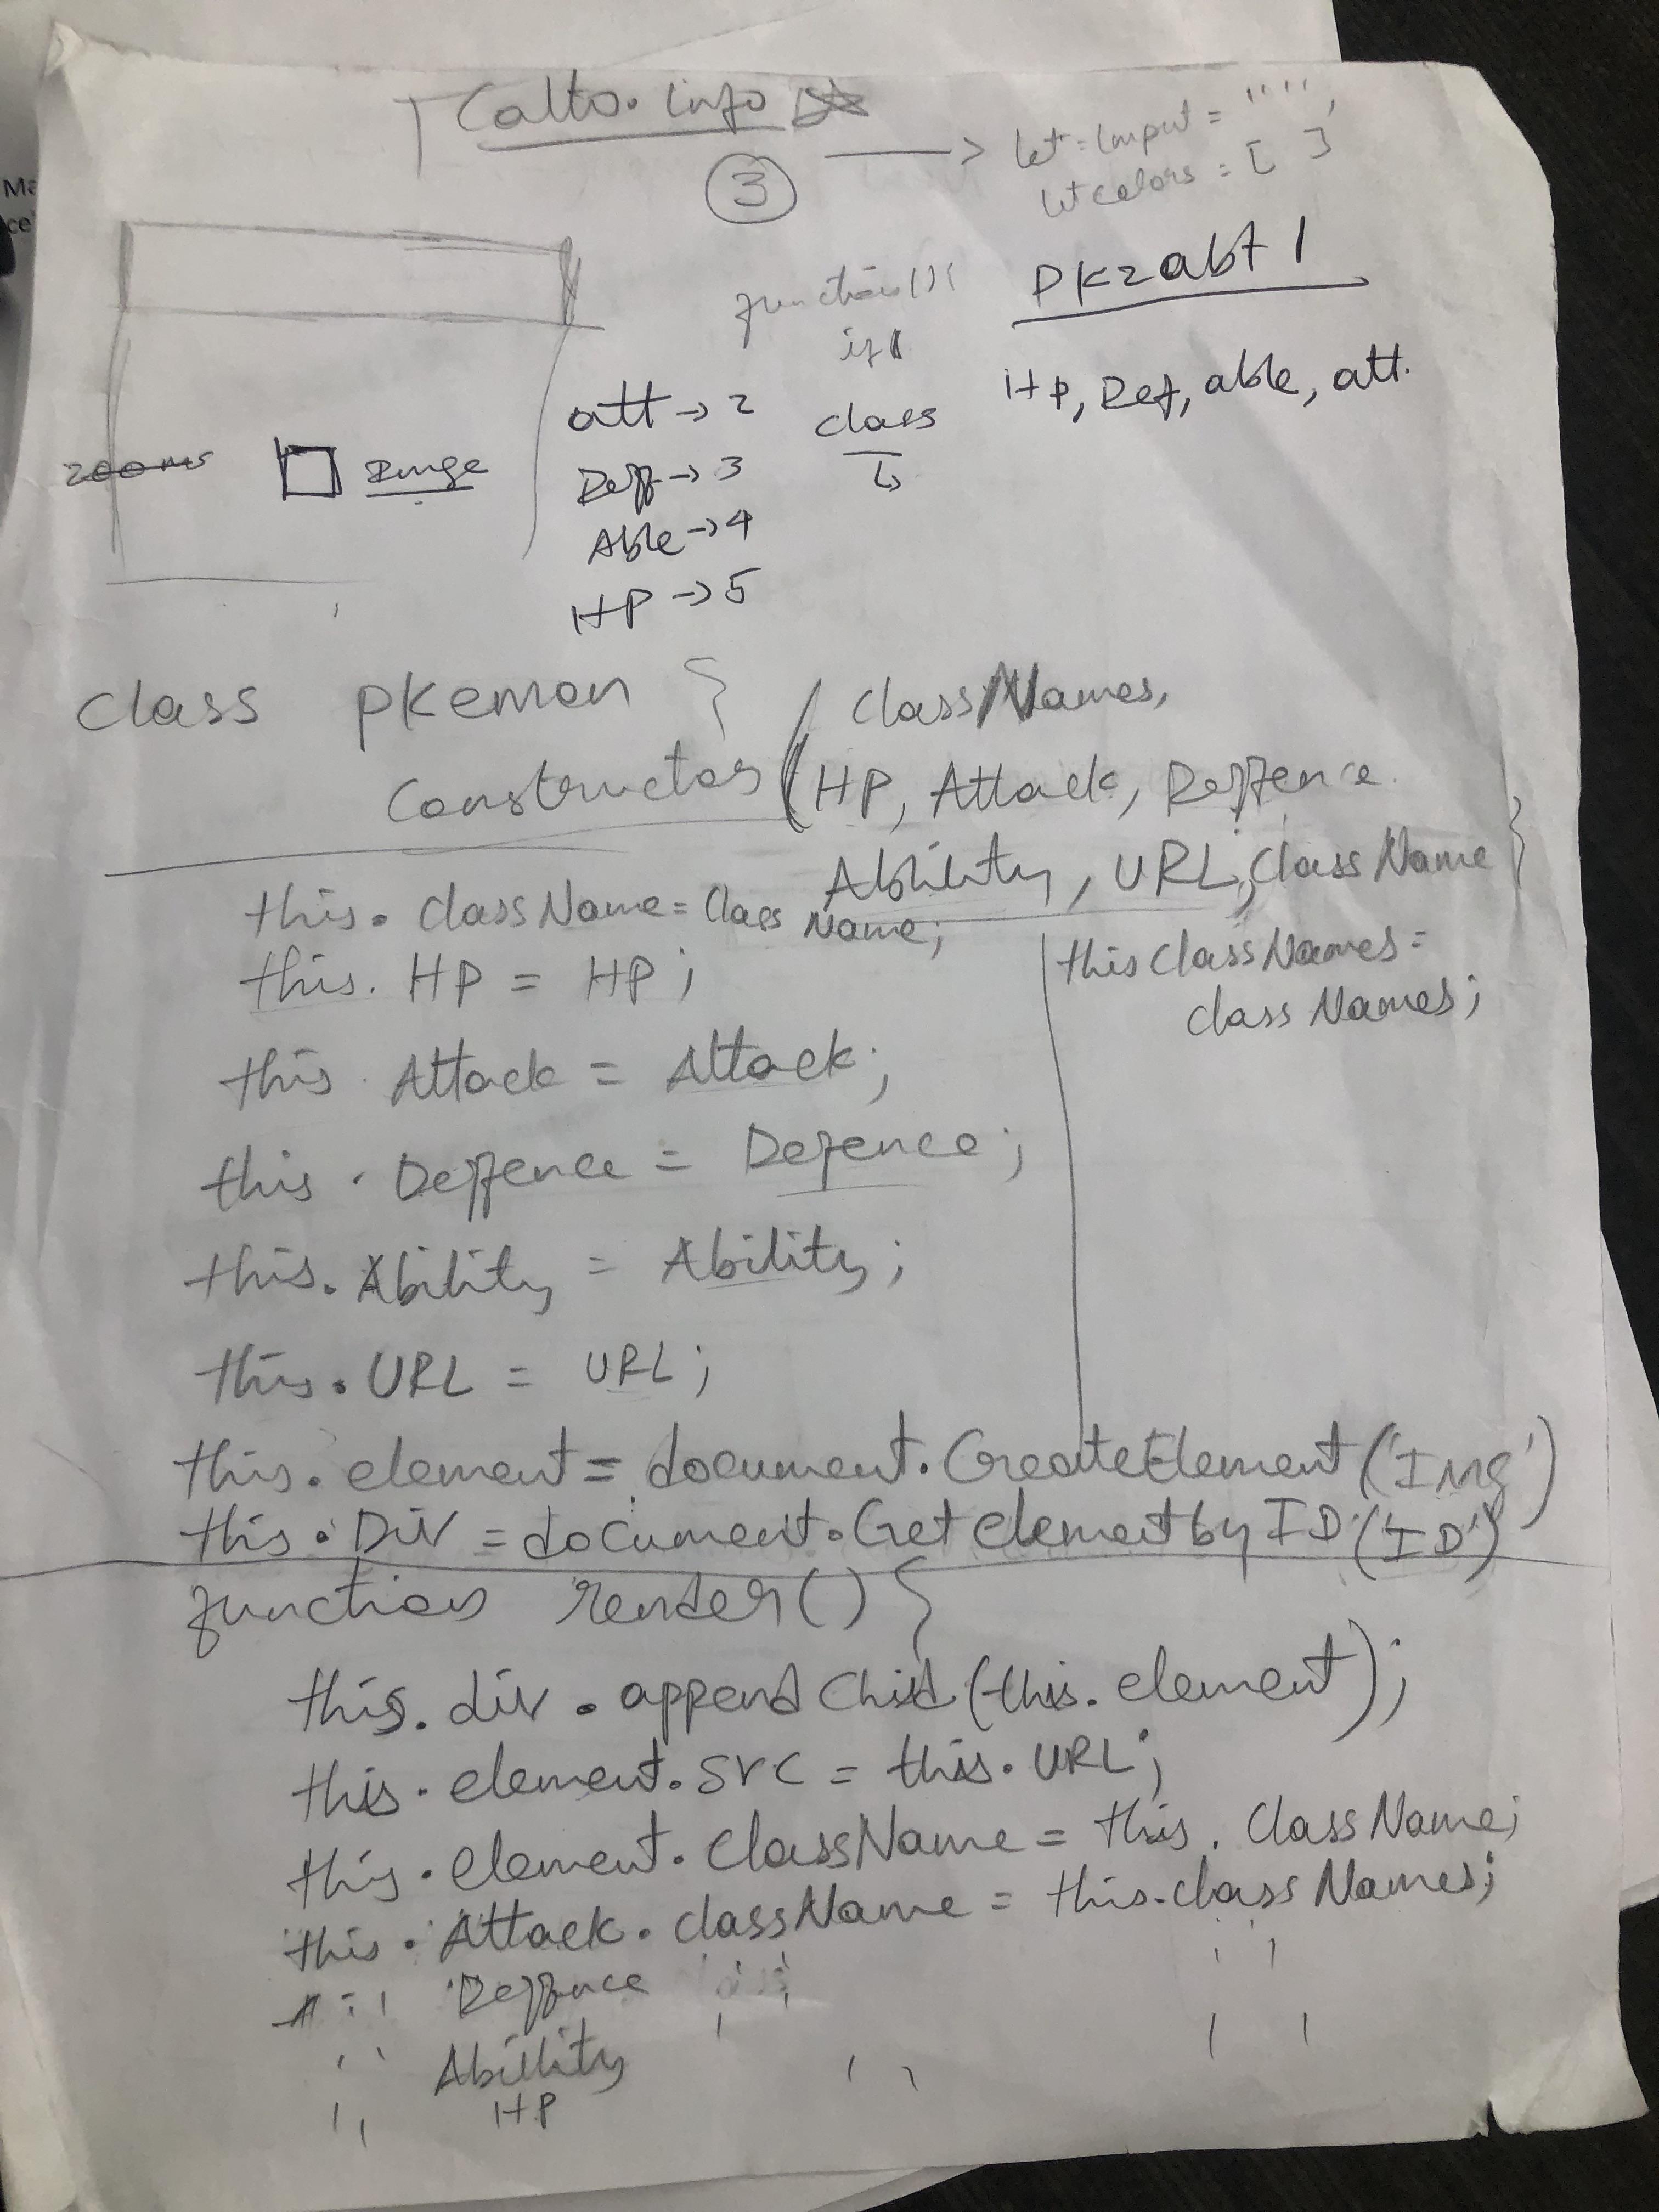 Calto.info
③ → let = Input = "";
let colors = [ ]
function
if
PK2abt1
2000ms
att → 2 class HP, Def, able, att.
Deff → 3
Able → 4
HP → 5
class PKemon { classNames,
Constructor (HP, Attack, Deffence
Ability, URL, class Name }
this. class Name = Class Name;
this class Names =
class Names;
this. HP = HP;
this. Attack = Attack;
this. Deffence = Defence;
this. Ability = Ability;
this. URL = URL;
this. element = document. CreateElement ('Img')
this. Div = document. Get element by ID ('ID')
function render () {
this. div. append Child (this. element);
this. element. src = this. URL;
this. element. className = this. class Name;
this. Attack. class Name = this. class Names;
Deffence
Ability
HP